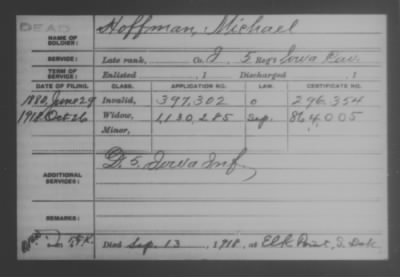 DEAD
NAME OF SOLDIER: Hoffman, Michael
SERVICE: Late rank, Co. I, 5 Reg't Iowa Cav.
TERM OF SERVICE: Enlisted , 1 Discharged , 1
DATE OF FILING. CLASS. APPLICATION NO. CERTIFICATE NO.
1880, June 29 Invalid, 397,302 296.354
1918 Oct 26 Widow, 1,130,285 864,005
Minor,
D. 5. Iowa Inf.
ADDITIONAL SERVICES:
REMARKS:
Died Sep. 13, 1918, at Elk Point, S. Dak